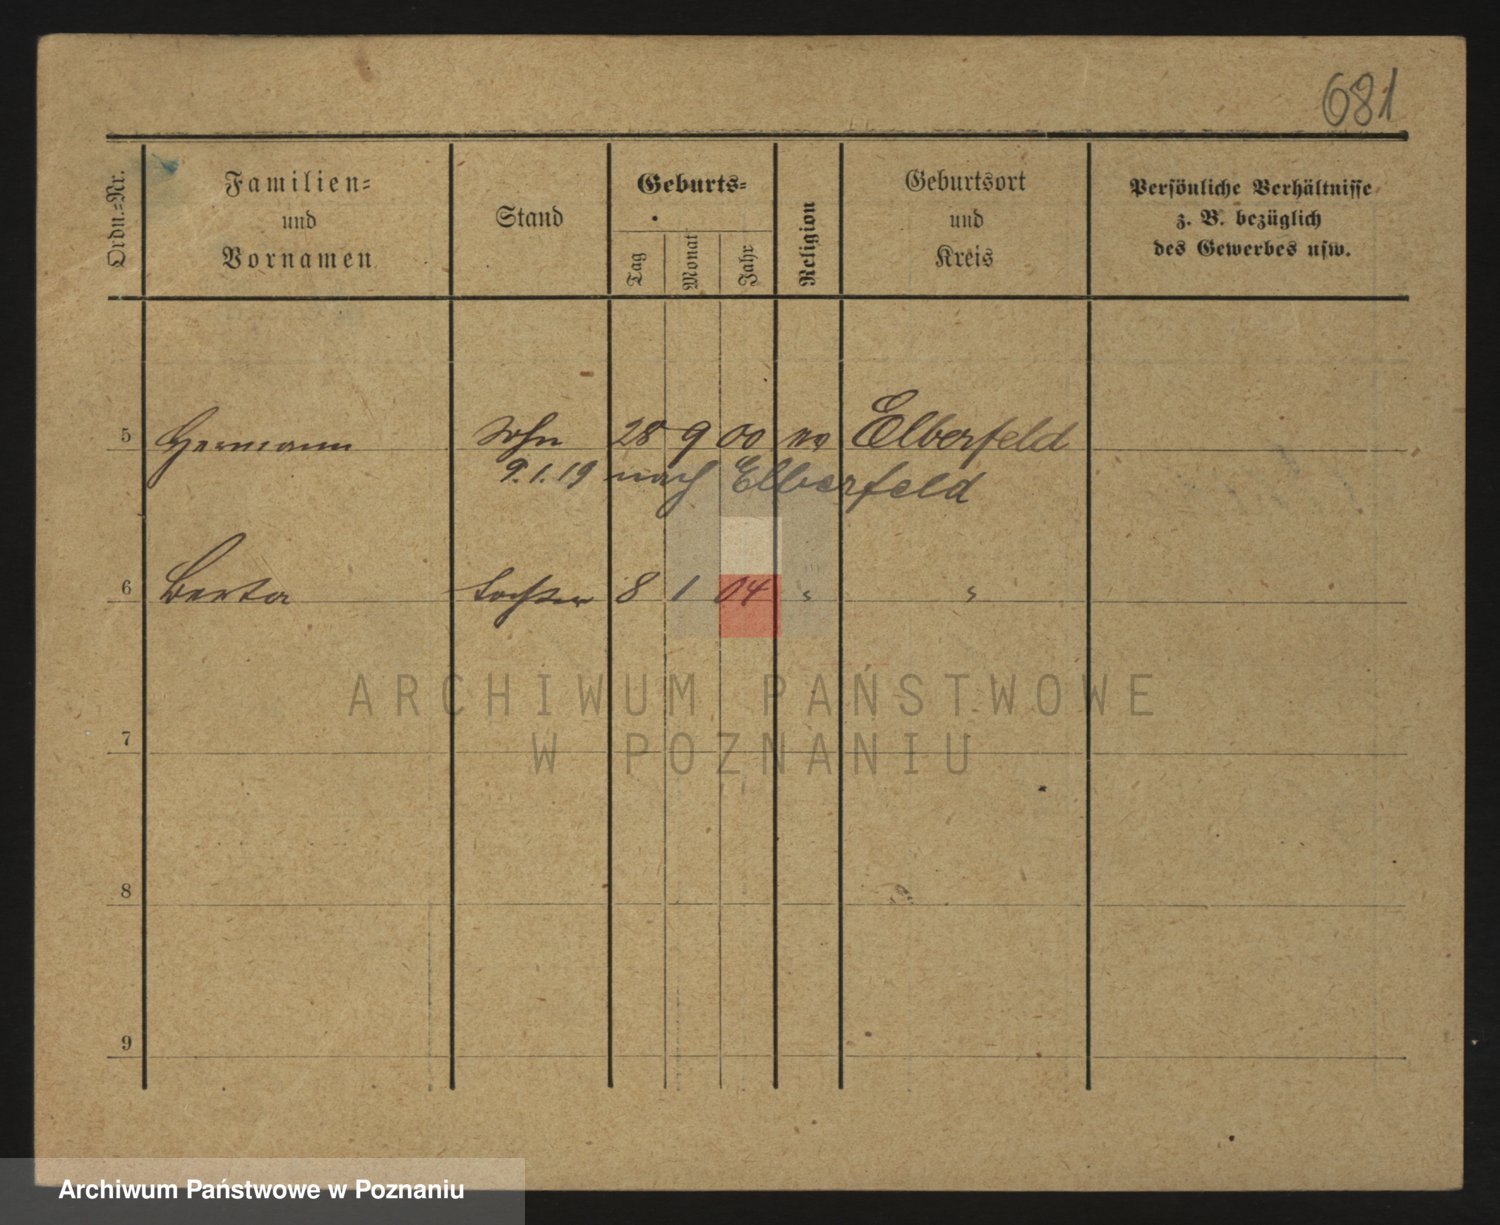 681
Ordn.-Nr.
Familien-
und
Vornamen
Stand
Geburts-
Tag
Monat
Jahr
Religion
Geburtsort
und
Kreis
Persönliche Verhältnisse
z. B. bezüglich
des Gewerbes usw.
5 Hermann Sohn 28 9 00 Elberfeld
9.1.19 nach Elberfeld
6 Berta Tochter 8 1 04 " "
ARCHIWUM PAŃSTWOWE
W POZNANIU
7
8
9
Archiwum Państwowe w Poznaniu